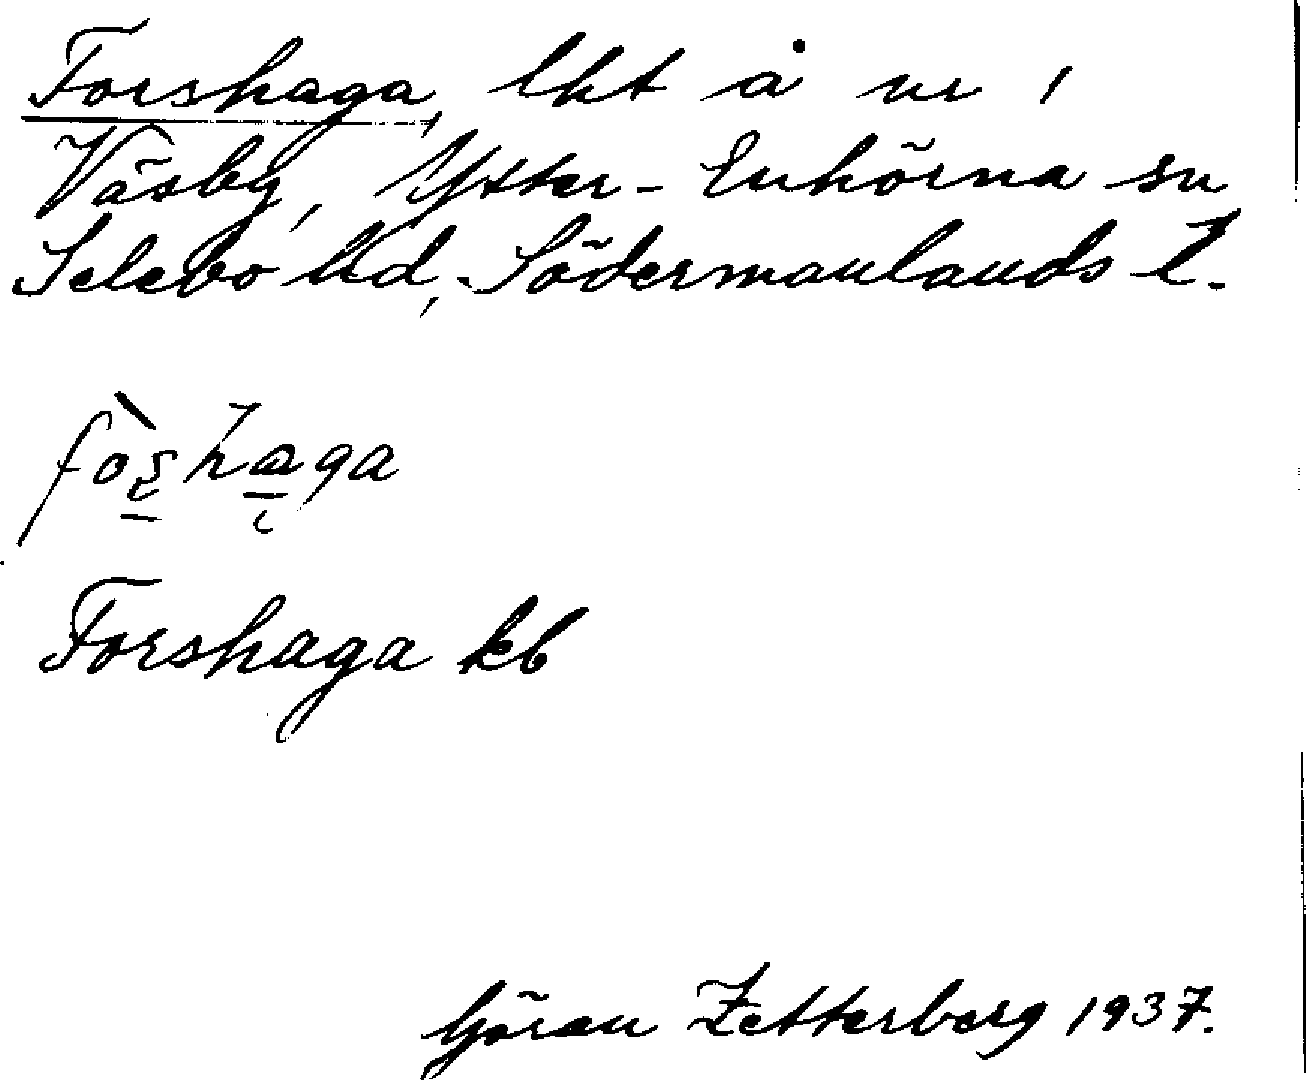 Forshaga, lht å nr 1
Väsby, Ytter-Enhörna sn
Selebo hd, Södermanlands l.
Forshaga kb
Göran Zetterberg 1937.